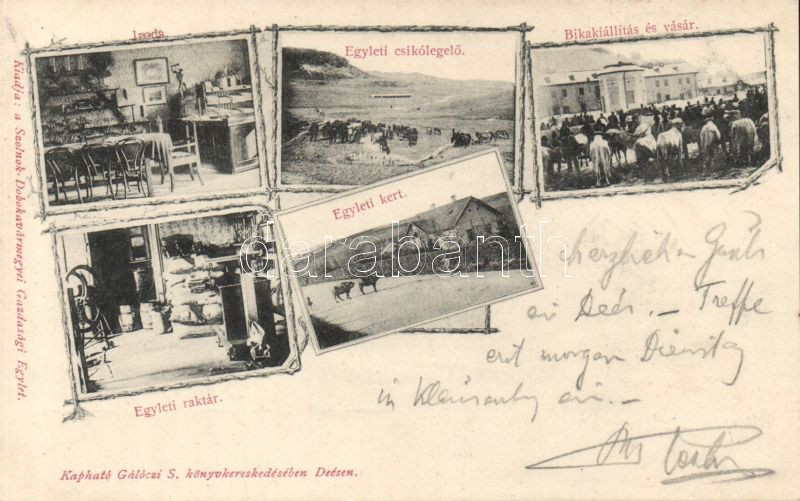 Iroda.
Egyleti csikólegelő.
Bikakiállítás és vásár.
Kiadja: a Szolnok-Dobokavármegyei Gazdasági Egylet.
Egyleti kert.
darabanth
Herzlichen Gruß
Deés. — Treffe
erst morgen Dienstag
in Klausenburg ein. —
Egyleti raktár.
Kapható Gálóczi S. könyvkereskedésében Deésen.